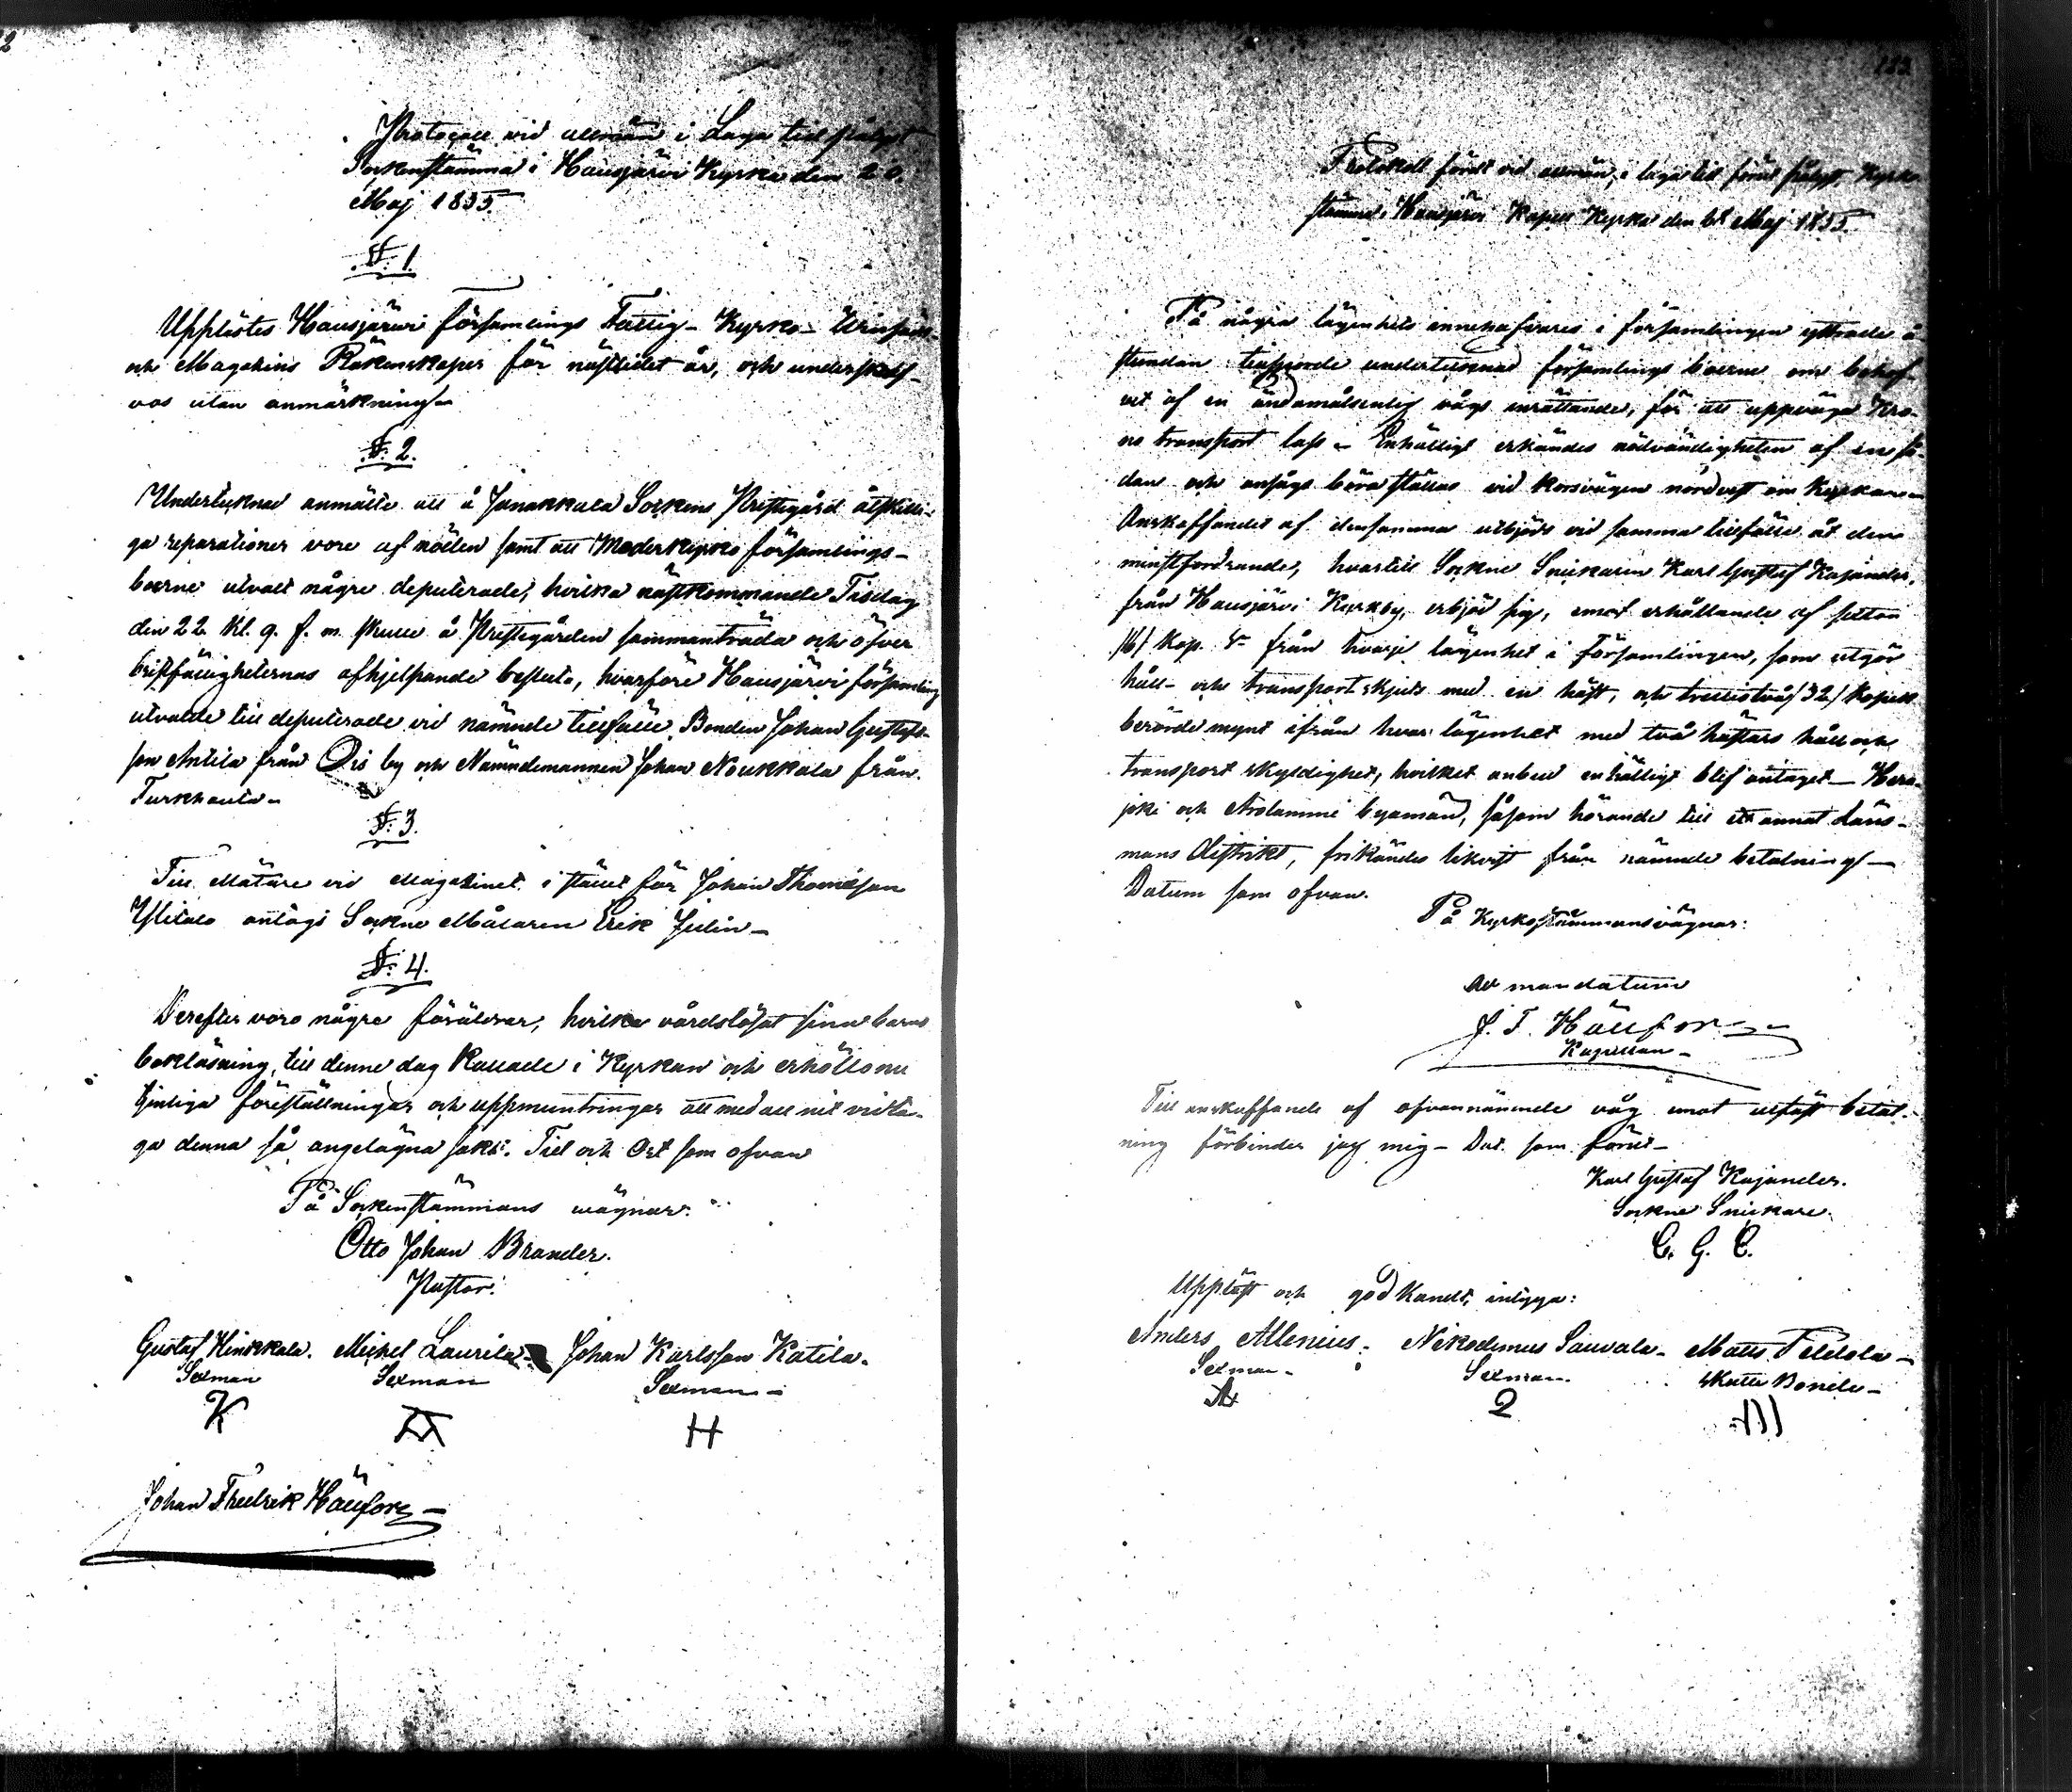 Protocoll vid allmän i Laga tid pålyst
Sockenstämma i Hausjärvi Kyrka den 20.
Maj 1855.
§. 1.
Upplästes Hausjärwi församlings Fattig- Kyrko-
och Magazins Räkenskaper för nästlidet år, och underskref-
vos utan anmärkning.-
§. 2.
Undertecknad anmälte att å Janakkala Sockens Prestegård åtskilli-
ga reparationer vore af nöden samt att Moderkyrko församlings-
boerne utvalt några deputerade, hvilka nästkommande Tisdag
den 22 kl. 9. f. m. skulle å Prestegården sammanträda och öfver
bristfälligheternas afhjelpande besluta, hvarföre Hausjärvi församling
utvalde till deputerade vid nämnde tillfälle Bonden Johan Gustafs-
son Antila från Ois by och Nämndemannen Johan Noukkala från
Turkhauta-
§. 3.
Till Mätare vid Magazinet i stället för Johan Thomasson
Ylitalo antogs Sockne Målaren Erik Julin-
§. 4.
Derefter voro några föräldrar, hvilka vårdslösat sina barns
bokläsning, till denne dag kallade i Kyrkan och erhöllo nu
tjenliga föreställningar och uppmuntringar att med all nit vidta-
ga denna så angelägna sak. Tid och Ort som ofvan
På Sockenstämmans wägnar:
Otto Johan Brander.
Pastor.
Gustaf Hinkkala. Michel Laurila- Johan Karlsson Katila.
Sexman Sexman Sexman-
K H
Johan Fredrik Hällfors-
Protokoll fördt vid allmän, i laga tid förut pålyst, Kyrko-
stämma i Hausjärvi Kapell Kyrka den 6 Maj 1855.
På några lägenhets innehafvares i församlingen yttrade å-
stundan tillsporde undertecknad församlings boerne om behof-
vet af en ändamålsenlig vågs inrättande, för att uppväga Kro-
no transport lass- Enhälligt erkändes nödvändigheten af en så-
dan och ansågs böra ställas vid korsvägen nordvest om Kyrkan-
Anskaffandet af densamma utbjöds vid samma tillfälle åt den
minstfordrande, hvartill Sockne Snickaren Karl Gustaf Kajander,
från Hausjärvi Kyrkby, erbjöd sig, emot erhållande af sexton
/16/ Kop. Sr från hvarje lägenhet i Församlingen, som utgör
håll- och transportskjuts med en häst, och trettiotvå /32/ kopek
berörde mynt ifrån hvar lägenhet med två hästars håll och
transport skyldighet, hvilket anbud enhälligt blef antaget- Hera-
joki och Arolammi byamän, såsom hörande till ett annat Läns-
mans distrikt, frikändes likväl från nämnde betalning.-
Datum som ofvan.
På Kyrkostämmans vägnar:
Ad mandatum
J. F. Hällfors-
Kapellan-
Till anskaffande af ofvannämnde våg emot utfäst betal-
ning förbinder jag mig- Dat. som förut-
Karl Gustaf Kajander.
Sockne Snickare.
C. G. C.
Uppläst och godkändt, intyga:
Anders Allenius- Nikodemus Sauvala- Matts
Sexman- Sexman. Skatte Bonde-
2